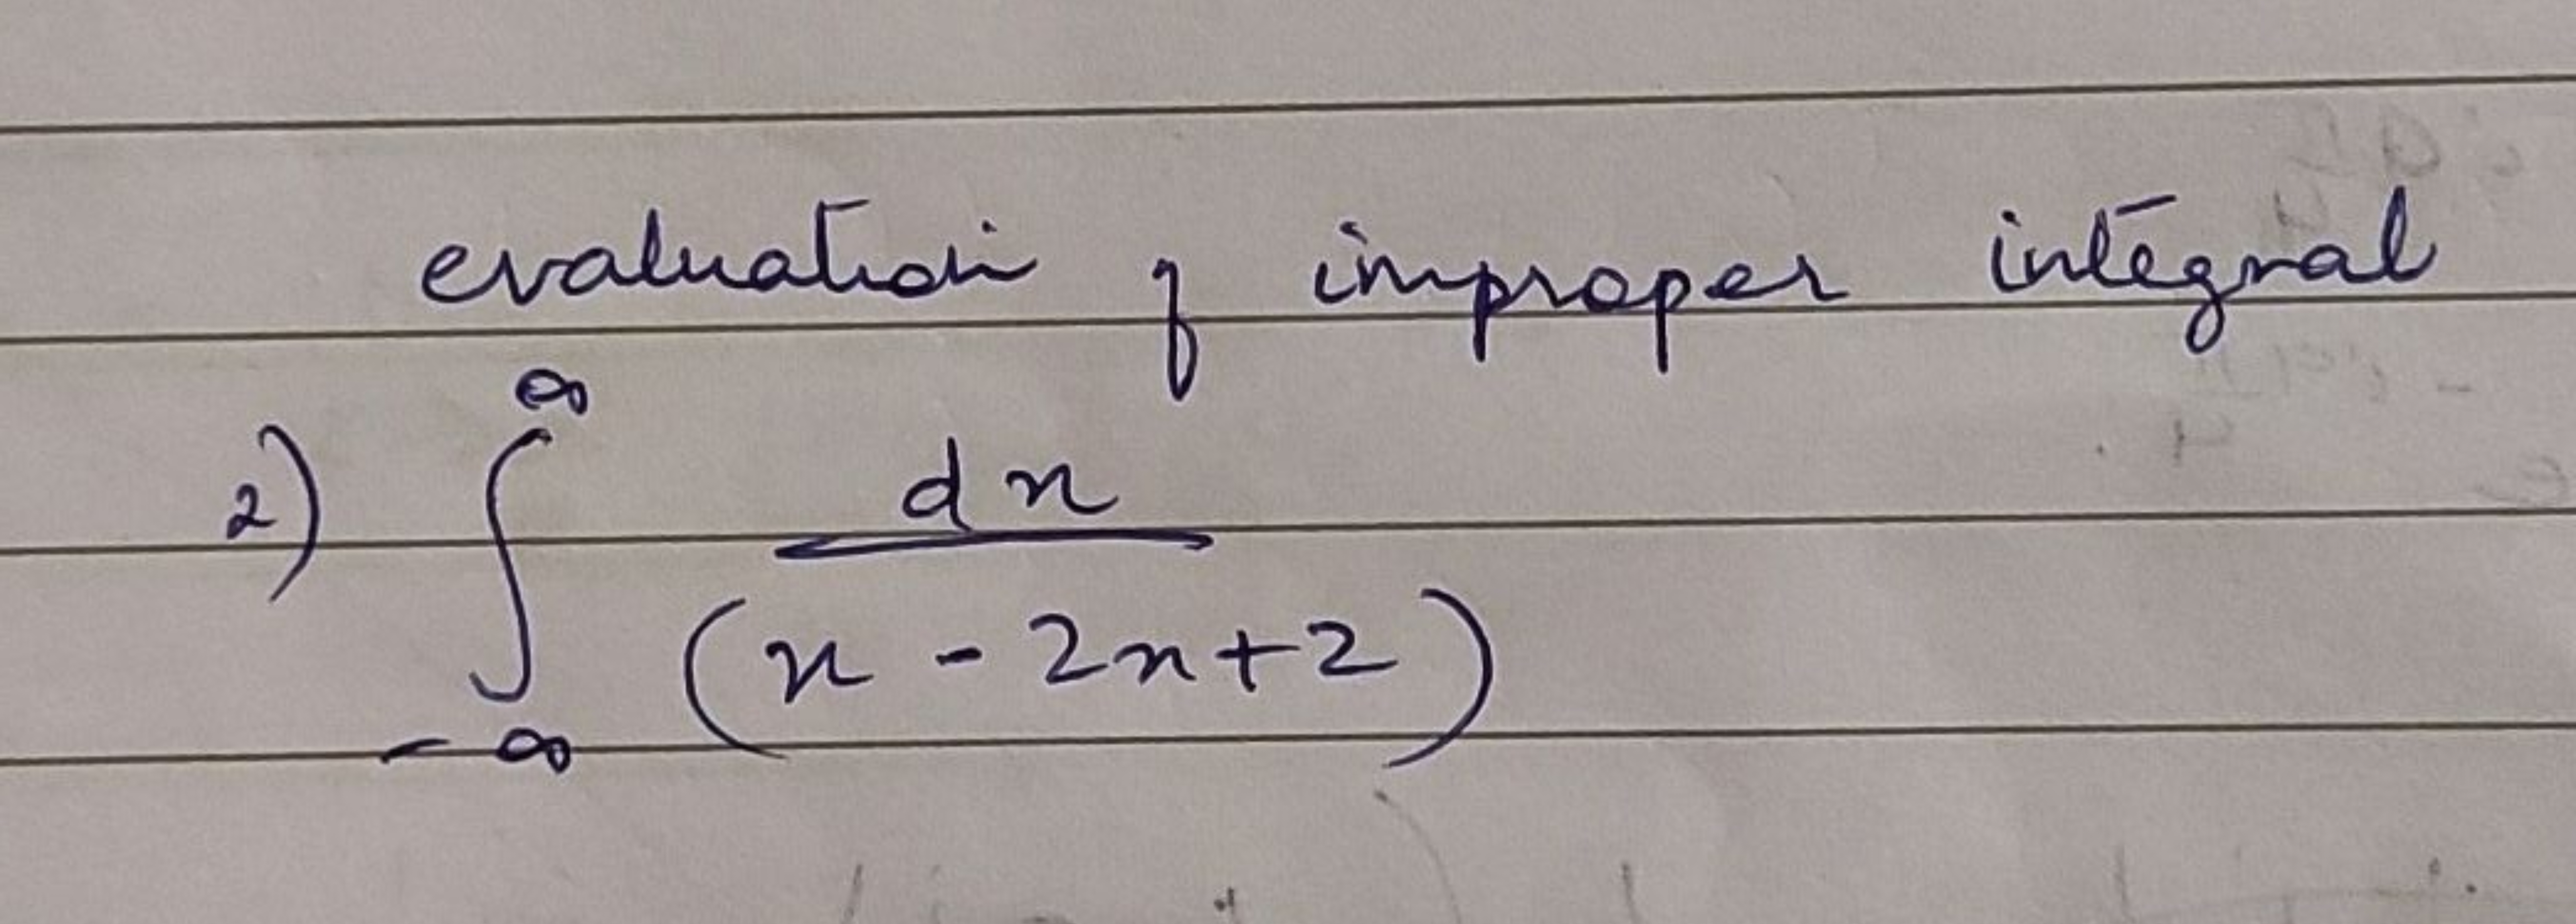 evaluation of improper integral
2) ∫_{-∞}^{∞} dx / (x - 2x + 2)